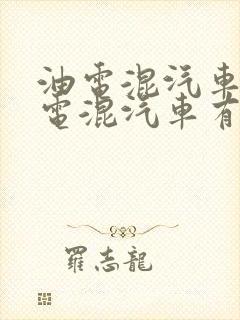 油電混汽車
電混汽車有
羅志龍